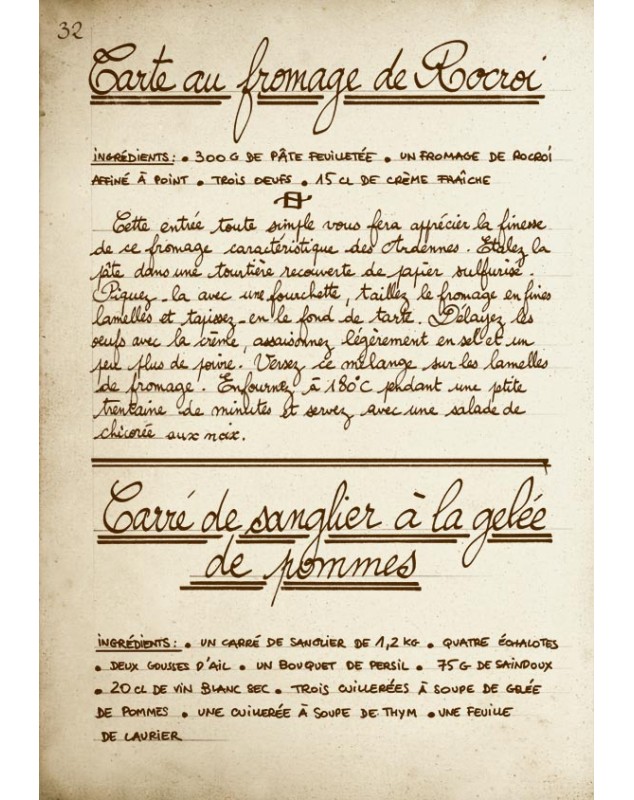 32
Tarte au fromage de Rocroi
INGRÉDIENTS : • 300 G DE PÂTE FEUILLETÉE • UN FROMAGE DE ROCROI
AFFINÉ À POINT • TROIS OEUFS • 15 CL DE CRÈME FRAÎCHE
Cette entrée toute simple vous fera apprécier la finesse
de ce fromage caractéristique des Ardennes. Etalez la
pâte dans une tourtière recouverte de papier sulfurisé.
Piquez-la avec une fourchette, taillez le fromage en fines
lamelles et tapissez-en le fond de tarte. Délayez les
oeufs avec la crème, assaisonnez légèrement en sel et un
peu plus de poivre. Versez ce mélange sur les lamelles
de fromage. Enfournez à 180°C pendant une ptite
trentaine de minutes et servez avec une salade de
chicorée aux noix.
Carré de sanglier à la gelée
de pommes
INGRÉDIENTS : • UN CARRÉ DE SANGLIER DE 1,2 KG • QUATRE ÉCHALOTES
• DEUX GOUSSES D'AIL • UN BOUQUET DE PERSIL • 75 G DE SAINDOUX
• 20 CL DE VIN BLANC SEC • TROIS CUILLERÉES À SOUPE DE GELÉE
DE POMMES • UNE CUILLERÉE À SOUPE DE THYM • UNE FEUILLE
DE LAURIER